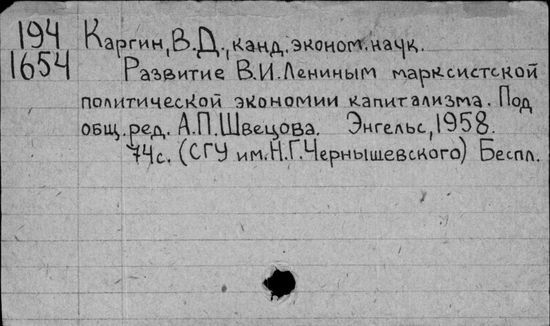 194 Каргин, В.Д., канд. эконом. наук.
1654 Развитие В.И.Лениным марксистской
политической экономии капитализма. Под
общ. ред. А.П.Швецова. Энгельс, 1958.
74с. (СГУ им. Н.Г.Чернышевского) Беспл.